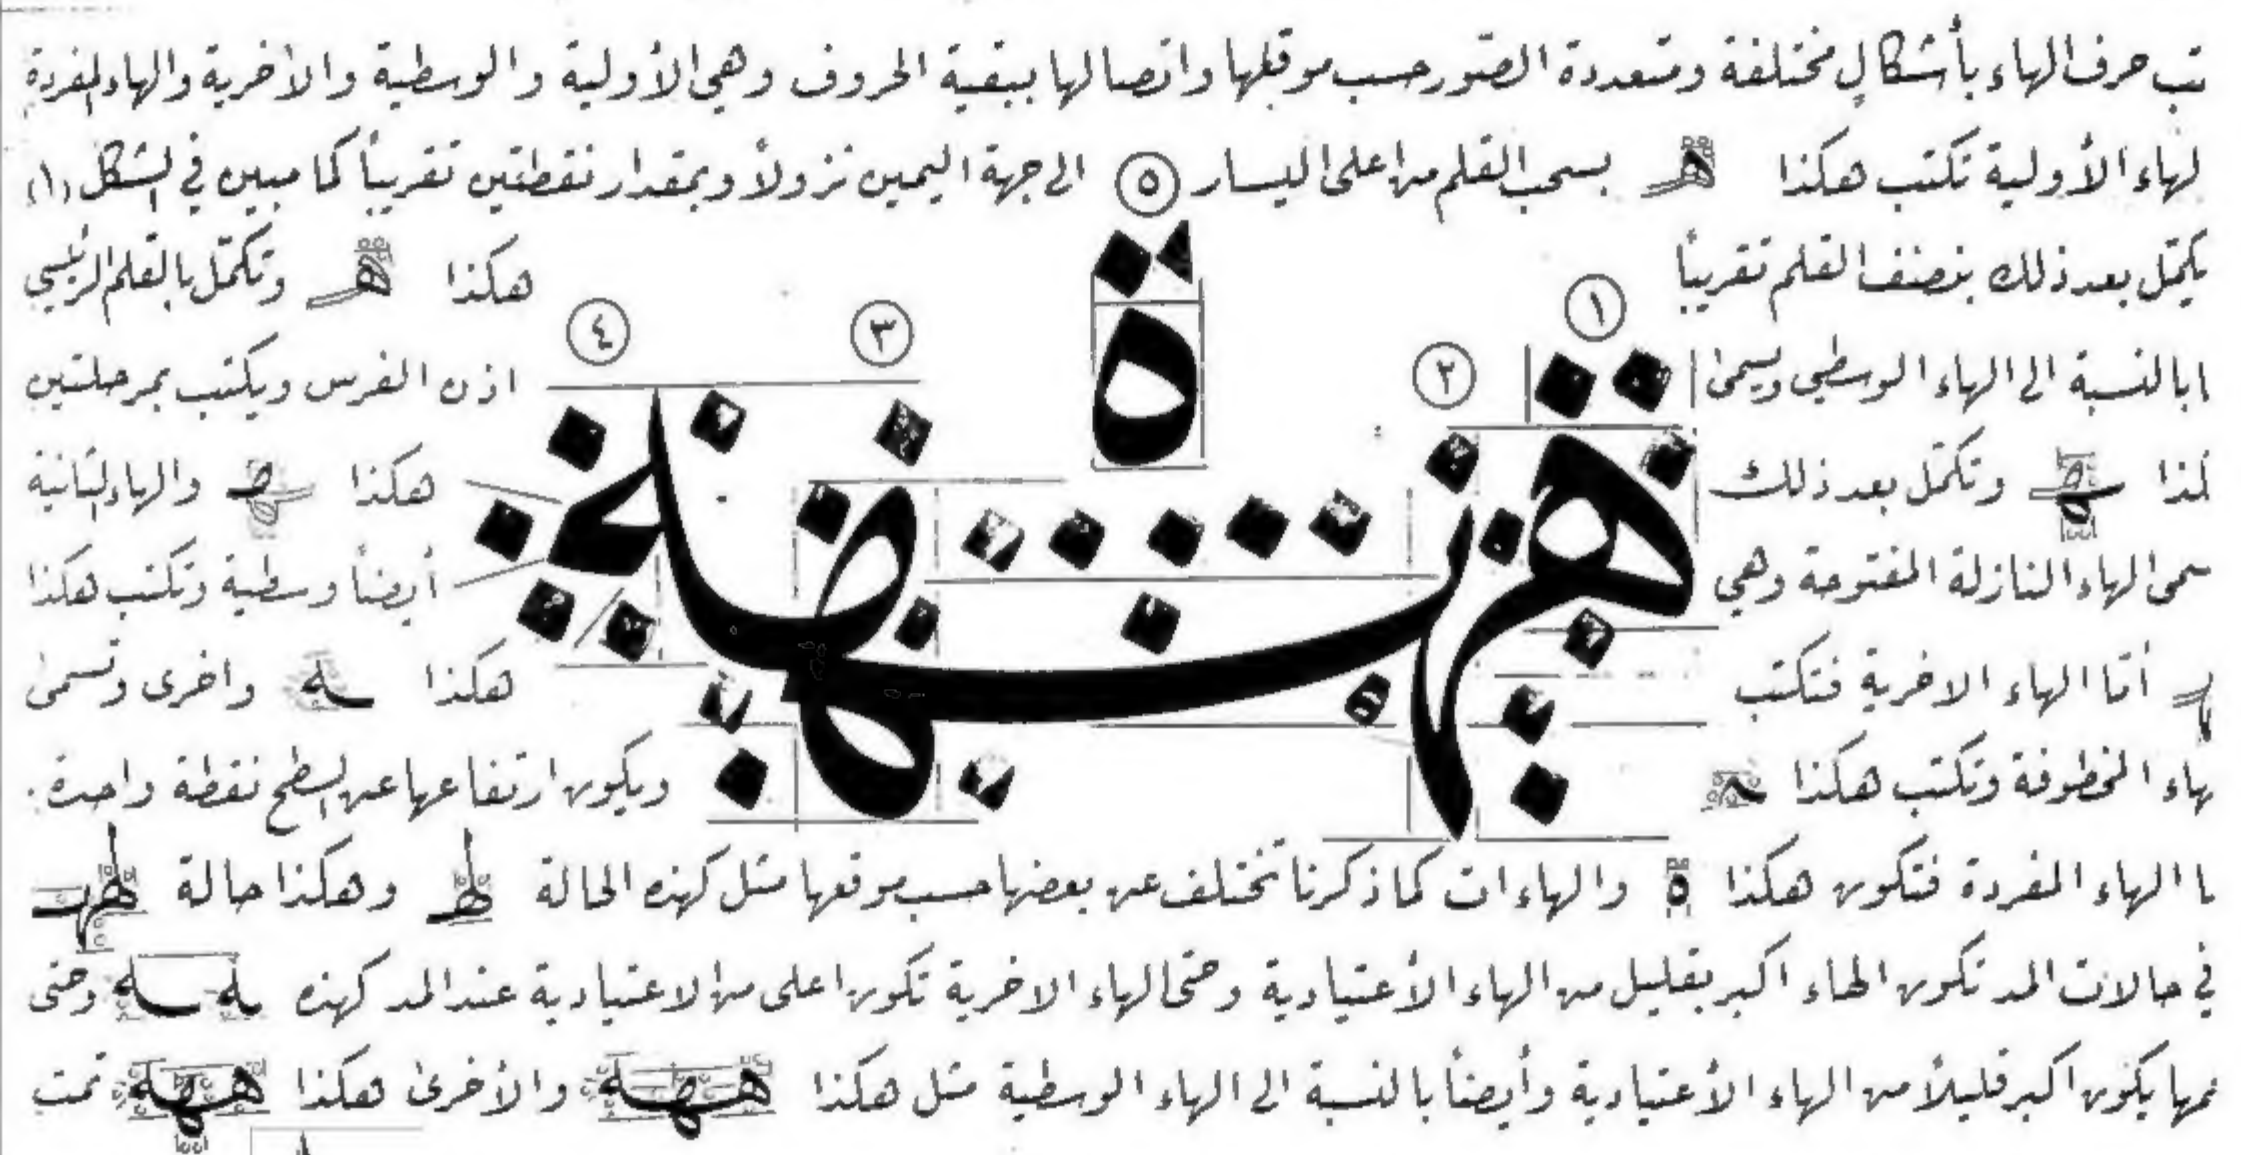 تب حرف الهاء بأشكالٍ مختلفة ومتعددة الصّور حسب موقعها واتصالها ببقية الحروف وهي الأولية والوسطية والأخرية والهاء المفردة
لهاء الأولية تكتب هكذا هـ بسحب القلم من اعلى اليسار ٥ الى جهة اليمين نزولاً وبمقدار نقطتين تقريباً كما مبين في الشكل (١)
يكمّل بعد ذلك بنصف القلم تقريباً هكذا هـ وتكمّل بالقلم الرئيسي
ابالنسبة الى الهاء الوسطي ويسمى اذن الفرس ويكتب بمرحلتين
وتكمّل بعد ذلك هكذا والهاء الثانية
سمى الهاء النازلة المفتوحة وهي أيضاً وسطية وتكتب هكذا
أمّا الهاء الاخرية فتكتب هكذا ـه واخرى وتسمى
هاء المخطوفة وتكتب هكذا ـه ويكون ارتفاعها عن السطح نقطة واحدة.
١
٢
٣
٤
ما الهاء المفردة فتكون هكذا ه والهاءات كما ذكرنا تختلف عن بعضها حسب موقعها مثل كهذه الحالة وهكذا حالة
في حالات المد تكون الهاء اكبر بقليل من الهاء الأعتيادية وحتى الهاء الاخرية تكون اعلى من الاعتيادية عند المد كهذه ـه ـه وحتى
يكون اكبر قليلاً من الهاء الأعتيادية وأيضاً بالنسبة الى الهاء الوسطية مثل هكذا ههه والأخرى هكذا ههه تمت